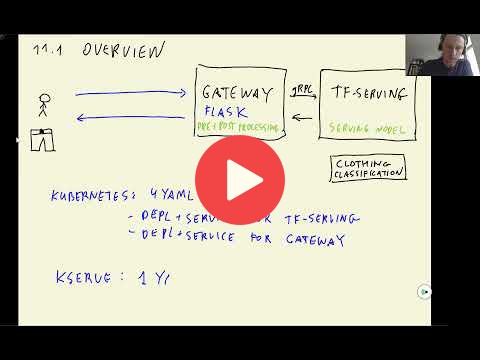 11.1 OVERVIEW
GATEWAY
FLASK
PRE + POST PROCESSING
gRPC
TF-SERVING
SERVING MODEL
CLOTHING
CLASSIFICATION
KUBERNETES: 4 YAML
- DEPL + SERV FOR TF-SERVING
- DEPL + SERVICE FOR GATEWAY
KSERVE: 1 YA